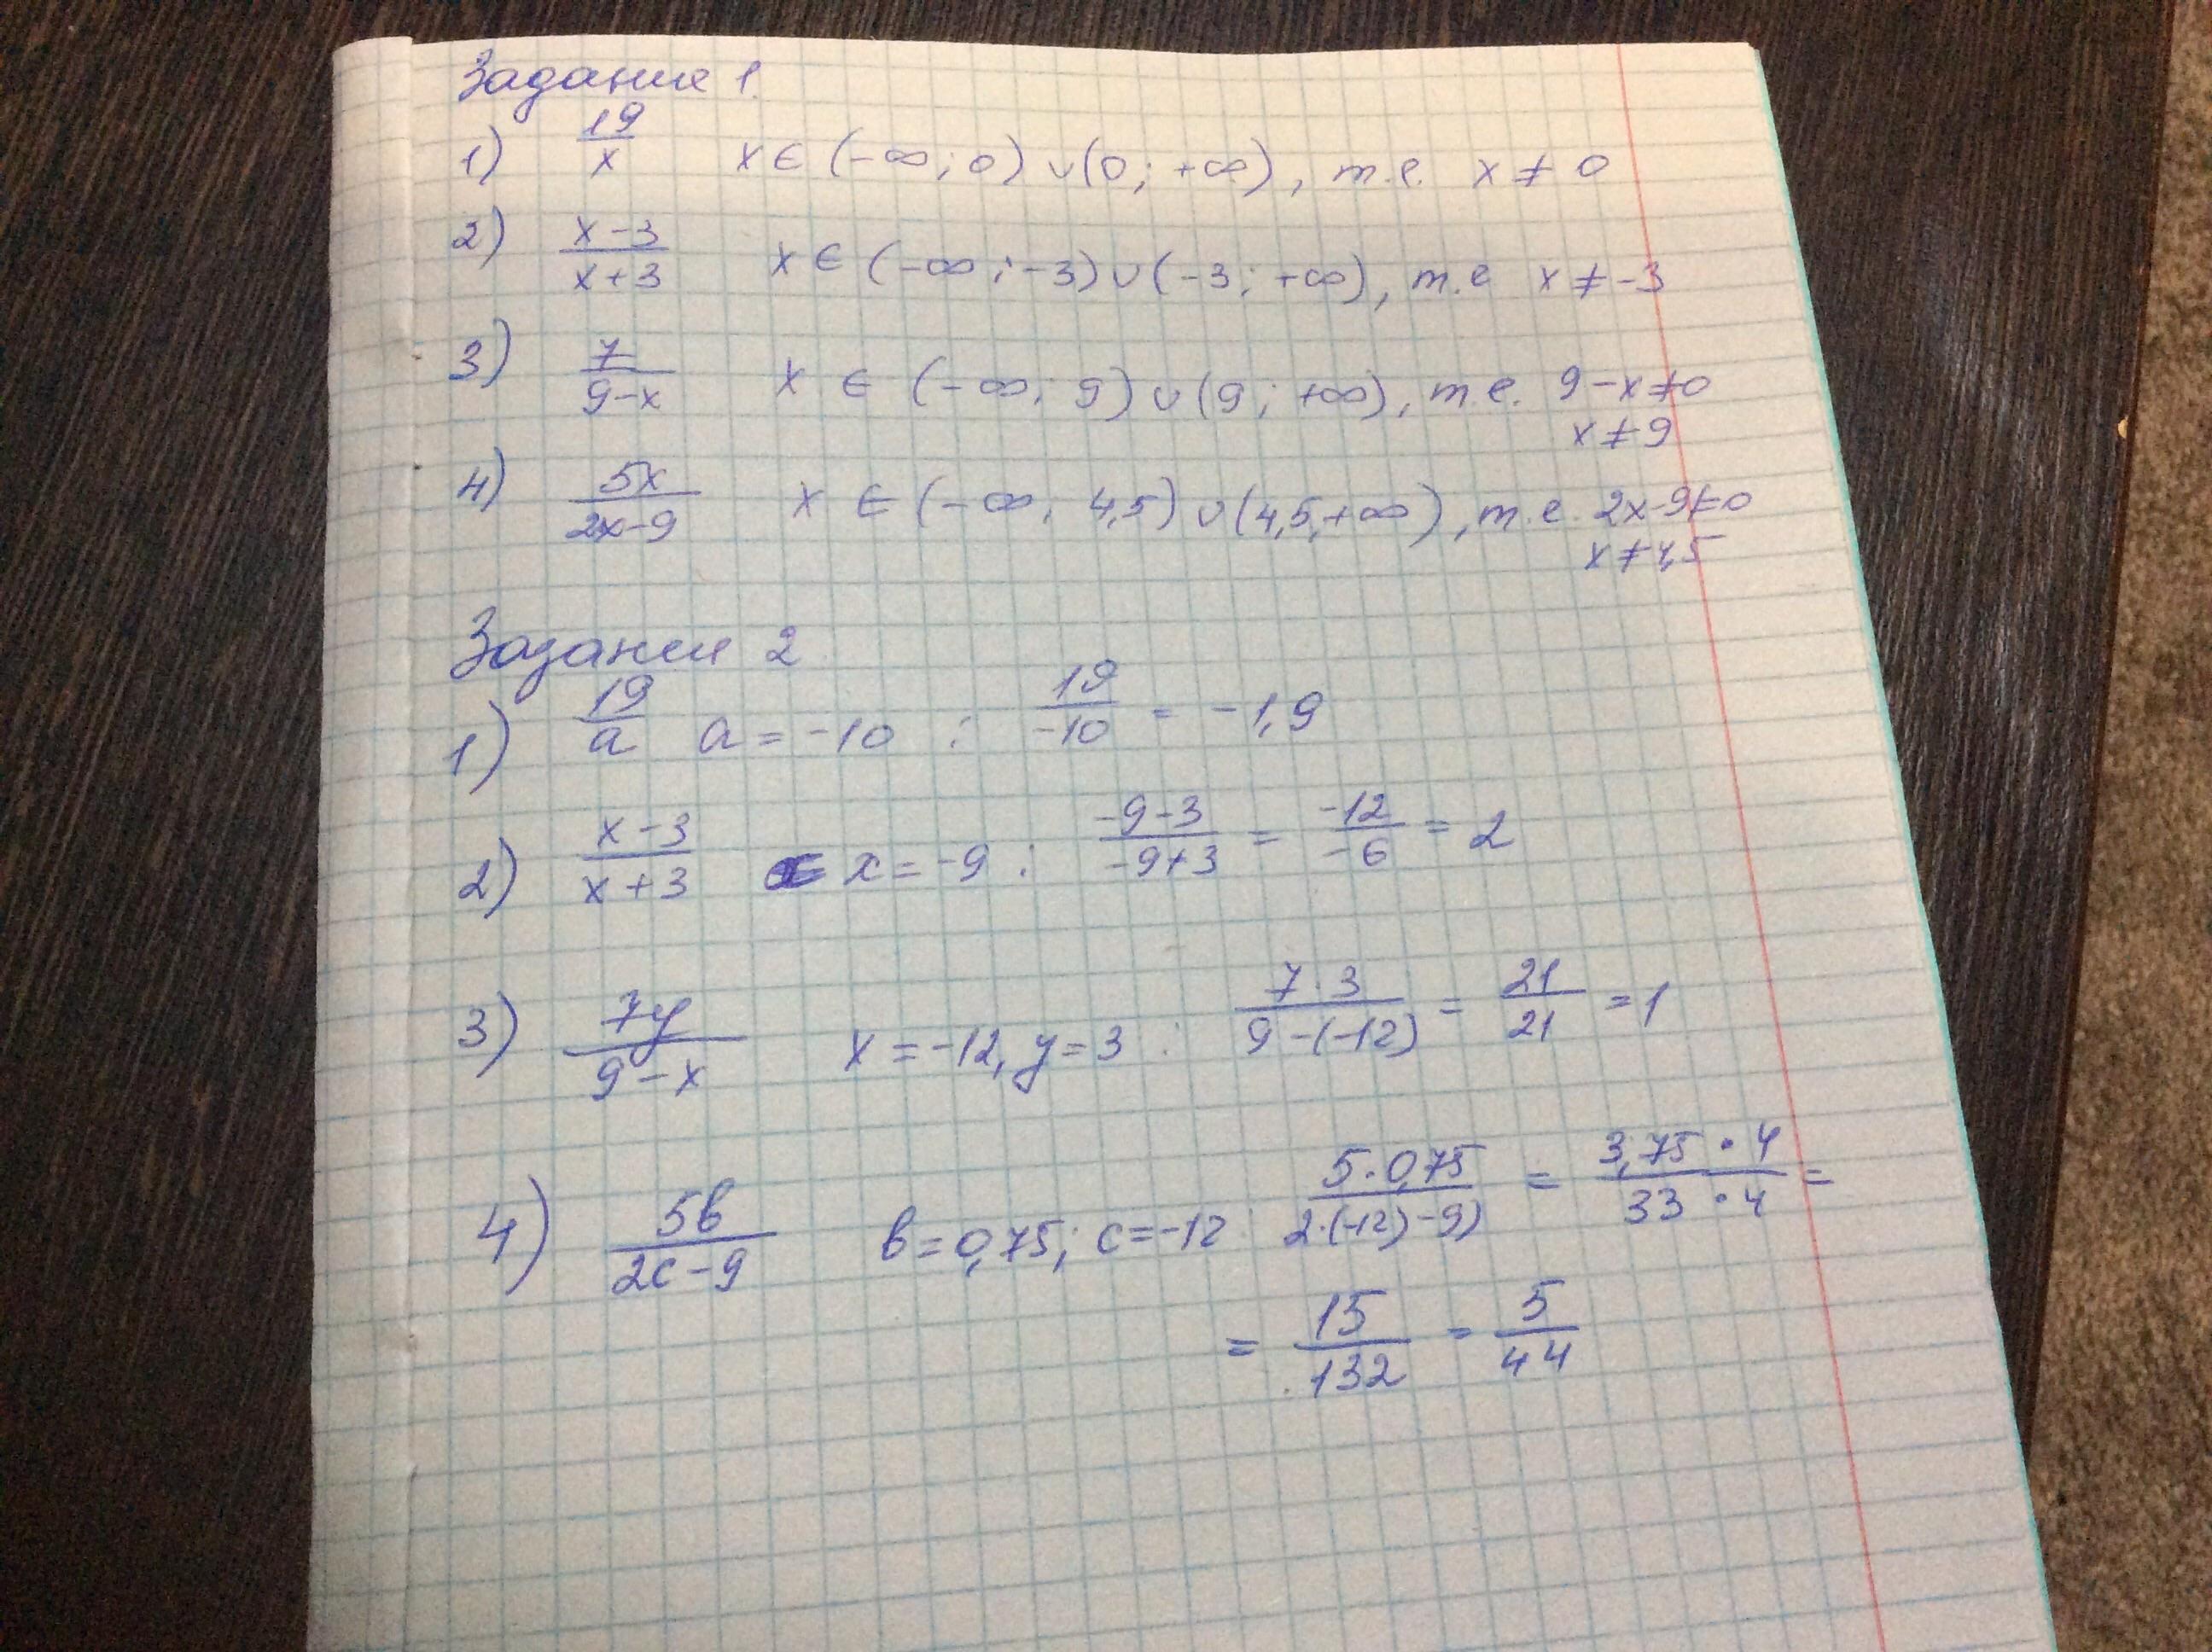 Задание 1.
1) 19/x x ∈ (-∞; 0) ∪ (0; +∞), т.е. x ≠ 0
2) x-3/x+3 x ∈ (-∞; -3) ∪ (-3; +∞), т.е x ≠ -3
3) 7/9-x x ∈ (-∞; 9) ∪ (9; +∞), т.е. 9-x≠0
x≠9
4) 5x/2x-9 x ∈ (-∞; 4,5) ∪ (4,5; +∞), т.е. 2x-9≠0
x≠4,5
Задание 2
1) 19/a a = -10 : 19/-10 = -1,9
2) x-3/x+3 x = -9 : -9-3/-9+3 = -12/-6 = 2
3) 7y/9-x x = -12, y = 3 : 7·3/9-(-12) = 21/21 = 1
4) 5в/2c-9 в=0,75; c=-12 5·0,75/2·(-12)-9) = 3,75·4/33·4 =
= 15/132 = 5/44